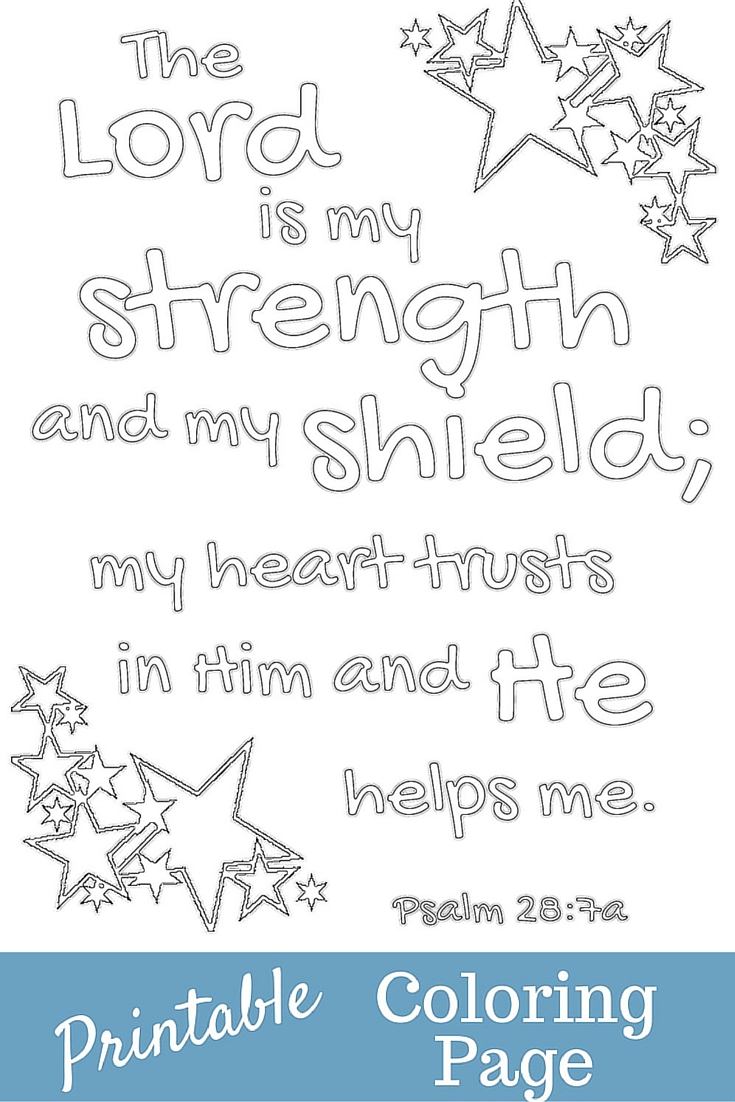 The
Lord
is my
strength
and my shield;
my heart trusts
in Him and He
helps me.
Psalm 28:7a
Printable Coloring
Page